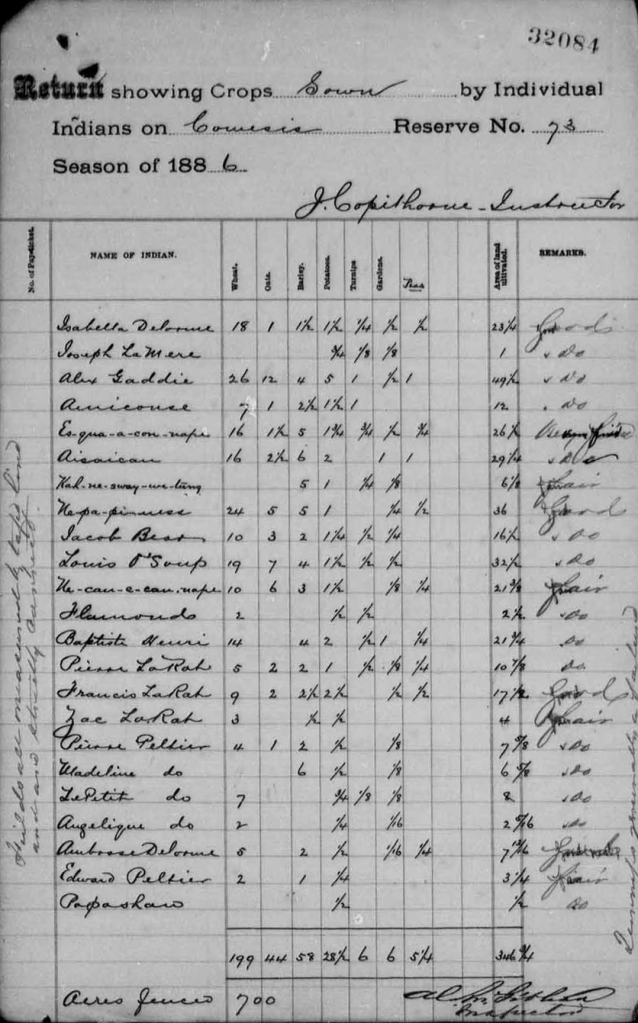 32084
Return showing Crops Sown by Individual
Indians on Cowesis Reserve No. 73
Season of 1886
J. Copithorne - Instructor
No. of Pay-ticket. NAME OF INDIAN. Wheat. Oats. Barley. Potatoes. Turnips Gardens. Peas Area of land cultivated. REMARKS.
Isabella Delorme 18 1 1½ 1½ ¼ ½ ½ 23¼ Good
Joseph LaMere ¾ ⅛ ⅛ 1 " do
Alex Gaddie 26 12 4 5 1 ½ 1 49½ " do
Amicouse 7 1 2½ 1½ 1 12 " do
Es-qua-a-con-nape 16 1½ 5 1¾ ¾ ½ ¾ 26½
Aisaican 16 2½ 6 2 1 1 29¼ " do
Kah-ne-sway-we-tung 5 1 ¼ ⅛ 6⅛ Fair
Ne-pa-pi-ness 24 5 5 1 ¼ ½ 36 Good
Jacob Bear 10 3 2 1¼ ½ ¼ 16½ " do
Louis O'Soup 19 7 4 1½ ½ ½ 32½ " do
Ke-can-e-can-nape 10 6 3 1½ ⅛ ¼ 21⅜ Fair
Flamonds 2 ½ ½ 2½ " do
Baptiste Henri 14 4 2 ½ 1 ¼ 21¾ do
Pierre LaRat 5 2 2 1 ½ ⅛ ¼ 10⅞ do
Francis LaRat 9 2 2½ 2½ ½ ½ 17½ Good
Zac LaRat 3 ½ ½ 4 Fair
Pierre Peltier 4 1 2 ½ ⅛ 7⅝ " do
Madeline do 6 ½ ⅛ 6⅝ " do
LePetit do 7 ¾ ⅛ ⅛ 8 " do
Angelique do 2 ¼ 1/16 2 5/16 " do
Ambrose Delorme 5 2 ½ 1/16 ¼
Edward Peltier 2 1 ¼ 3¼ Fair
Papashaw ½ ½ do
199 44 58 28½ 6 6 5¼ 346¾
Acres fenced 700
Inspector
Fields all measured by tape line
and are strictly
Turnips generally a failure